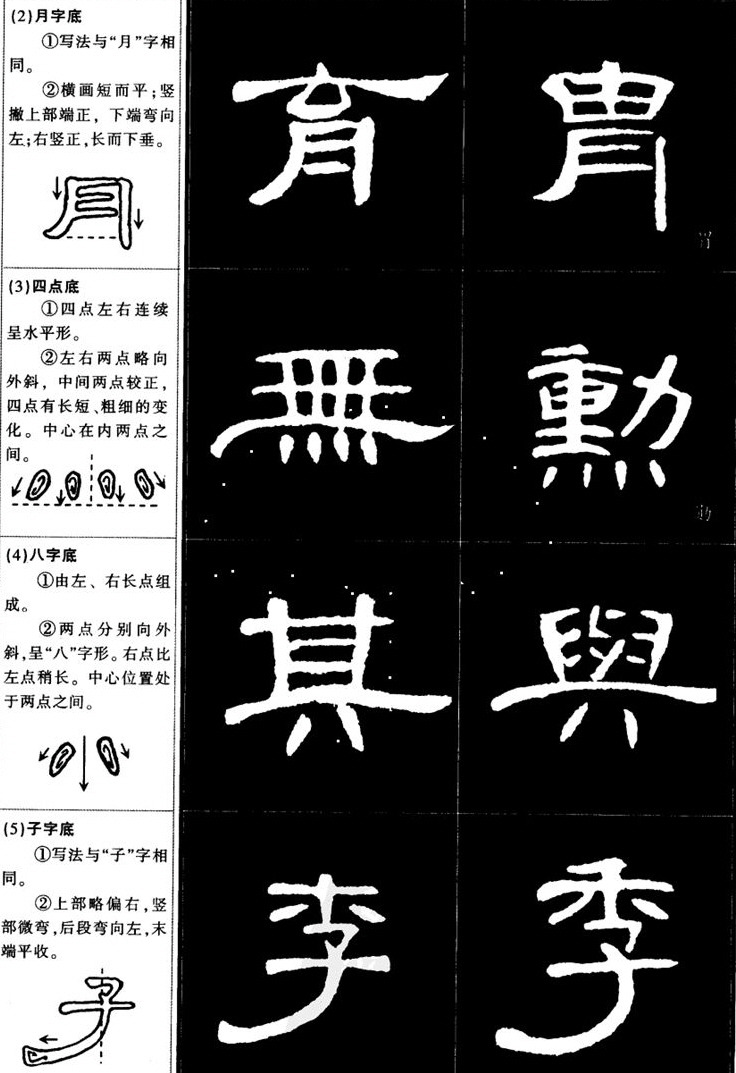 (2)月字底
①写法与“月”字相
同。
②横画短而平;竖
撇上部端正，下端弯向
左;右竖正,长而下垂。
育 胄
(3)四点底
①四点左右连续
呈水平形。
②左右两点略向
外斜，中间两点较正，
四点有长短、粗细的变
化。中心在内两点之
间。
無 勳
(4)八字底
①由左、右长点组
成。
②两点分别向外
斜,呈“八”字形。右点比
左点稍长。中心位置处
于两点之间。
其 與
(5)子字底
①写法与“子”字相
同。
②上部略偏右,竖
部微弯,后段弯向左,末
端平收。
李 季